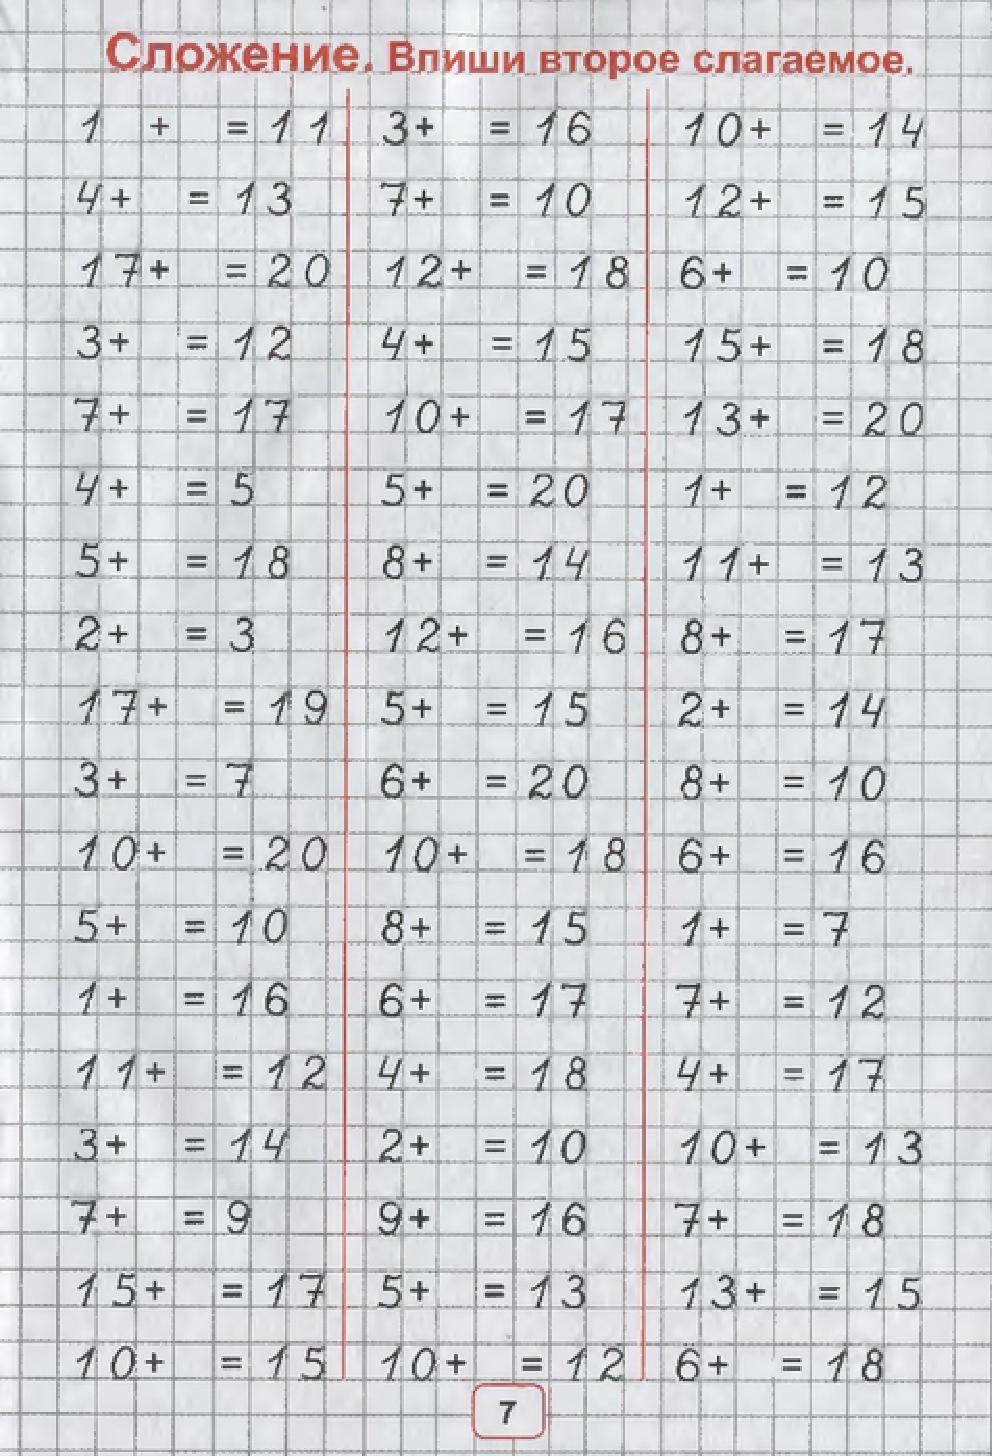 Сложение. Впиши второе слагаемое.
1 + = 11
4+ = 13
17+ = 20
3+ = 12
7+ = 17
4+ = 5
5+ = 18
2+ = 3
17+ = 19
3+ = 7
10+ = 20
5+ = 10
1+ = 16
11+ = 12
3+ = 14
7+ = 9
15+ = 17
10+ = 15
3+ = 16
7+ = 10
12+ = 18
4+ = 15
10+ = 17
5+ = 20
8+ = 14
12+ = 16
5+ = 15
6+ = 20
10+ = 18
8+ = 15
6+ = 17
4+ = 18
2+ = 10
9+ = 16
5+ = 13
10+ = 12
10+ = 14
12+ = 15
6+ = 10
15+ = 18
13+ = 20
1+ = 12
11+ = 13
8+ = 17
2+ = 14
8+ = 10
6+ = 16
1+ = 7
7+ = 12
4+ = 17
10+ = 13
7+ = 18
13+ = 15
6+ = 18
7